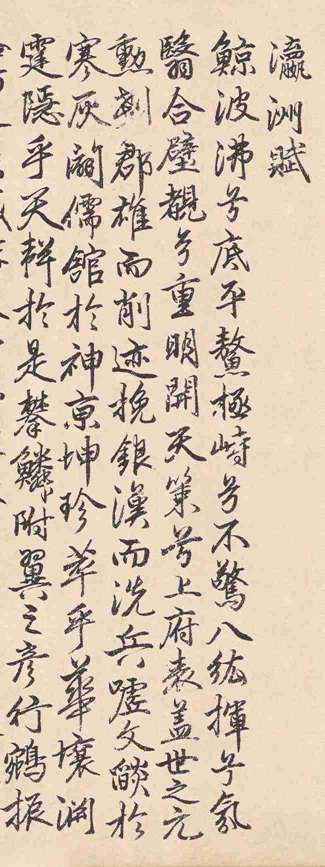 瀛洲賦
鯨波沸兮底平鼇極峙兮不驚八紘揮兮氛
翳合璧覩兮重明開天策兮上府表蓋世之元
勳剗郡雄而削迹挽銀漢而洗兵噓文燄於
寒灰闢儒館於神京坤珍萃乎華壤淵
霆隱乎天輧於是攀鱗附翼之彥行鵷振